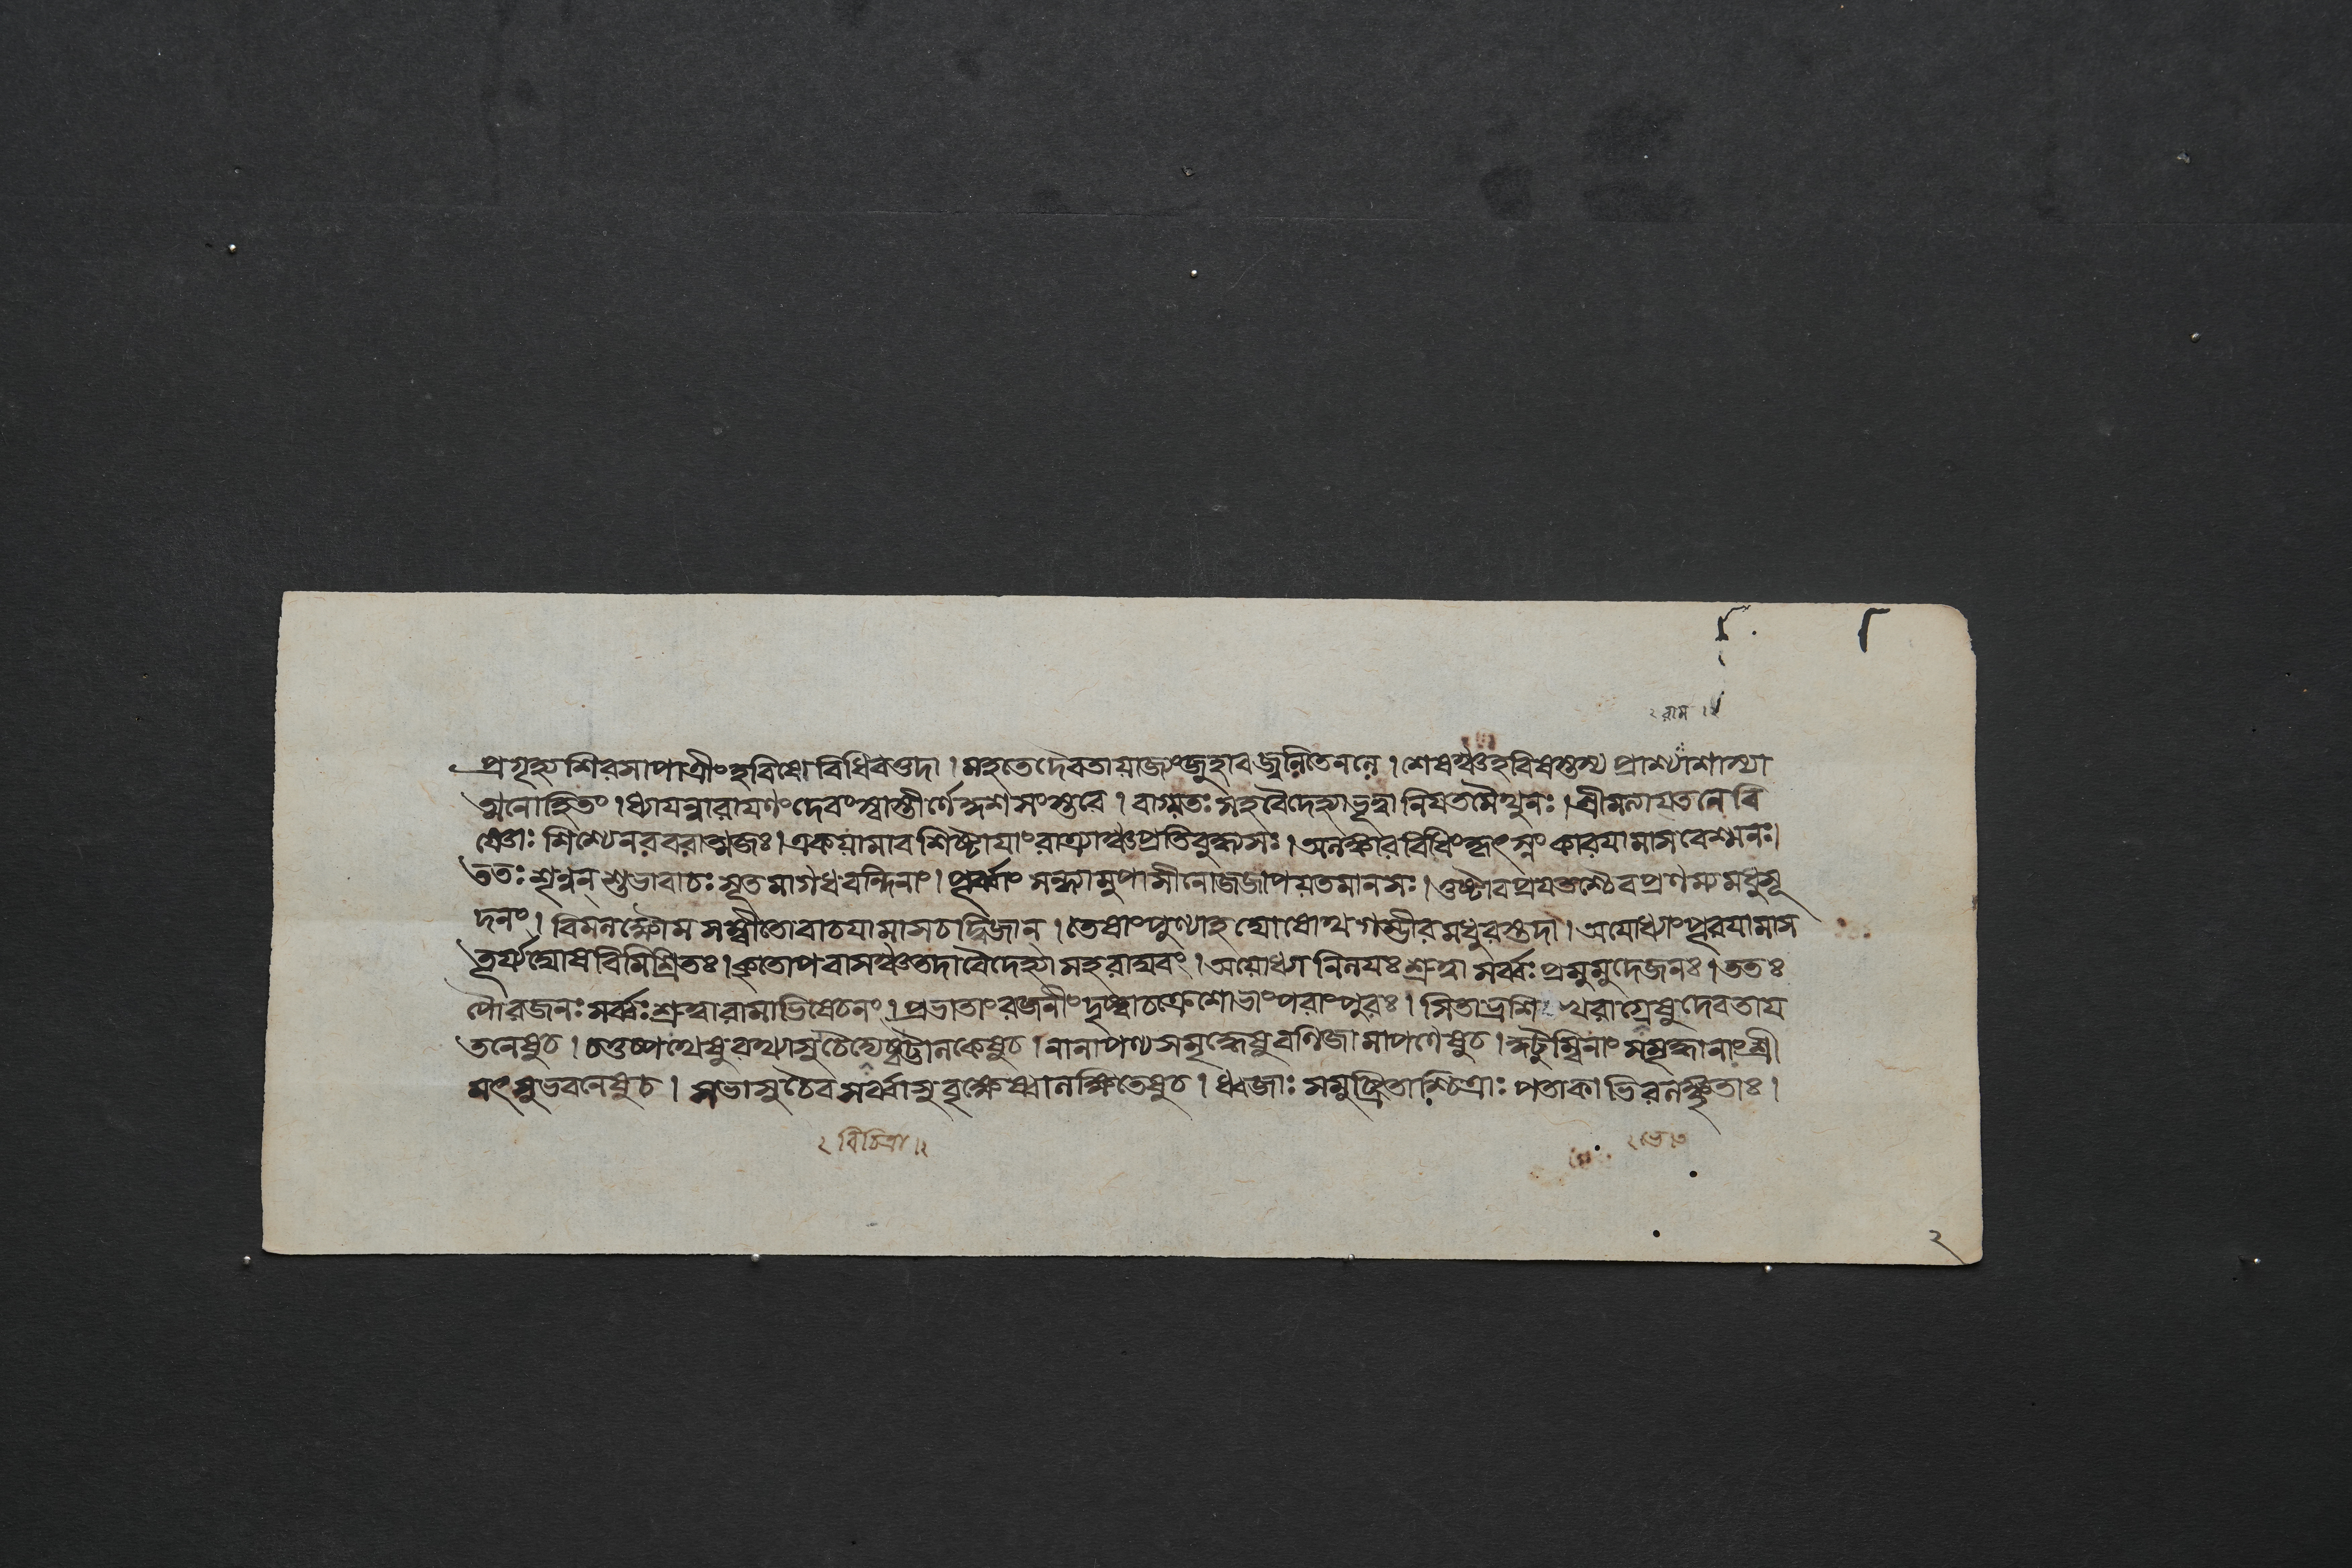 ২ রাম ।২
প্রগৃহ্য শিরসা পাত্রীং হবিষো বিধিবত্তদা । মহতে দৈবতায়াজ্যং জুহাব জ্বলিতেনলে । শেষঞ্চ হবিষস্তস্য প্রাশ্যাশাস্যা
ত্মনোহিতং । ধ্যায়ন্নারায়ণং দেবং স্বাস্তীর্ণে কুশসংস্তরে । বাগ্যতঃ সহ বৈদেহ্যা ভূত্বা নিয়তমৈথুনঃ । শ্রীমত্যায়তনে বি
ষ্ণোঃ শিশ্যে নরবরাত্মজঃ । একযামাবশিষ্টায়াং রাত্র্যাঞ্চ প্রতিবুধ্য সঃ । অলঙ্কারবিধিং কৃৎস্নং কারয়ামাস বেশ্মনঃ।
ততঃ শৃন্বন্ শুভা বাচঃ সূতমাগধবন্দিনাং । পূর্ব্বাং সন্ধ্যামুপাসীনো জজাপ যতমানসঃ । তুষ্টাব প্রযতশ্চৈব প্রণম্য মধুসূ
দনং । বিমলক্ষৌমসম্বীতো বাচয়ামাস চ দ্বিজান্ । তেষাং পুণ্যাহঘোষোথ গম্ভীরমধুরস্তদা । অযোধ্যাং পূরয়ামাস
তূর্য্যঘোষবিমিশ্রিতঃ । কৃতোপবাসঞ্চ তদা বৈদেহ্যা সহ রাঘবং । অযোধ্যানিলয়ঃ শ্রুত্বা সর্ব্বঃ প্রমুমুদে জনঃ । ততঃ
পৌরজনঃ সর্ব্বঃ শ্রুত্বা রামাভিষেচনং । প্রভাতাং রজনীং দৃষ্ট্বা চক্রে শোভাং পরাং পুরঃ । সিতাভ্রশিখরাগ্রেষু দেবতায়
তনেষু চ । চতুষ্পথেষু রথ্যাসু চৈত্যেষ্বট্টালকেষু চ । নানাপণ্যসমৃদ্ধেষু বণিজামাপণেষু চ । কুটুম্বিনাং সমৃদ্ধানাং শ্রী
মৎসু ভবনেষু চ । সভাসু চৈব সর্ব্বাসু বৃক্ষেষ্বালক্ষিতেষু চ । ধ্বজাঃ সমুচ্ছ্রিতাশ্চিত্রাঃ পতাকাভিরলঙ্কৃতাঃ ।
২ বিচিত্রা ।২
২